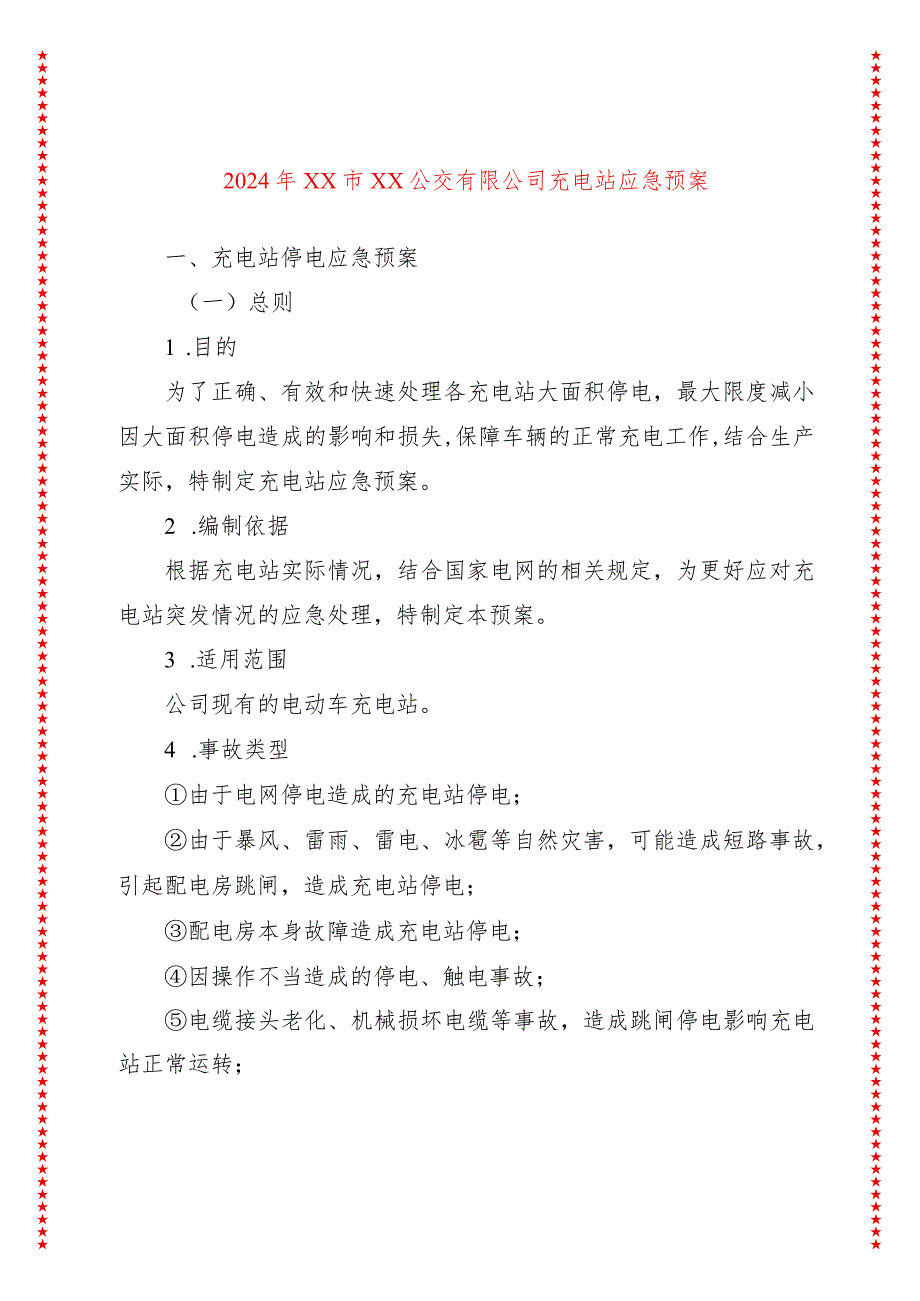 2024年XX市XX公交有限公司充电站应急预案
一、充电站停电应急预案
（一）总则
1 .目的
为了正确、有效和快速处理各充电站大面积停电，最大限度减小
因大面积停电造成的影响和损失,保障车辆的正常充电工作,结合生产
实际，特制定充电站应急预案。
2 .编制依据
根据充电站实际情况，结合国家电网的相关规定，为更好应对充
电站突发情况的应急处理，特制定本预案。
3 .适用范围
公司现有的电动车充电站。
4 .事故类型
①由于电网停电造成的充电站停电；
②由于暴风、雷雨、雷电、冰雹等自然灾害，可能造成短路事故，
引起配电房跳闸，造成充电站停电；
③配电房本身故障造成充电站停电；
④因操作不当造成的停电、触电事故；
⑤电缆接头老化、机械损坏电缆等事故，造成跳闸停电影响充电
站正常运转；